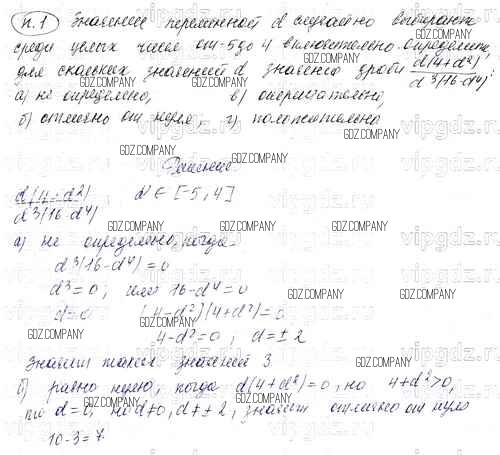 п.1 Значение переменной d случайно выбирают
среди целых чисел от -5 до 4 включительно. Определите,
для скольких значений d значение дроби d(4+d²)/d³(16-d⁴):
а) не определено, в) отрицательно,
б) отлично от нуля, г) положительно
Решение.
d(4+d²)/d³(16-d⁴) d ∈ [-5,4]
а) не определено, когда
d³(16-d⁴)=0
d³=0, или 16-d⁴=0
d=0 (4-d²)(4+d²)=0
4-d²=0, d=±2
Значит таких значений 3
б) равно нулю, когда d(4+d²)=0, но 4+d²>0,
то d=0, но d≠0, d≠±2, значит отлично от нуля
10-3=7.
GDZ.COMPANY
vipgdz.ru